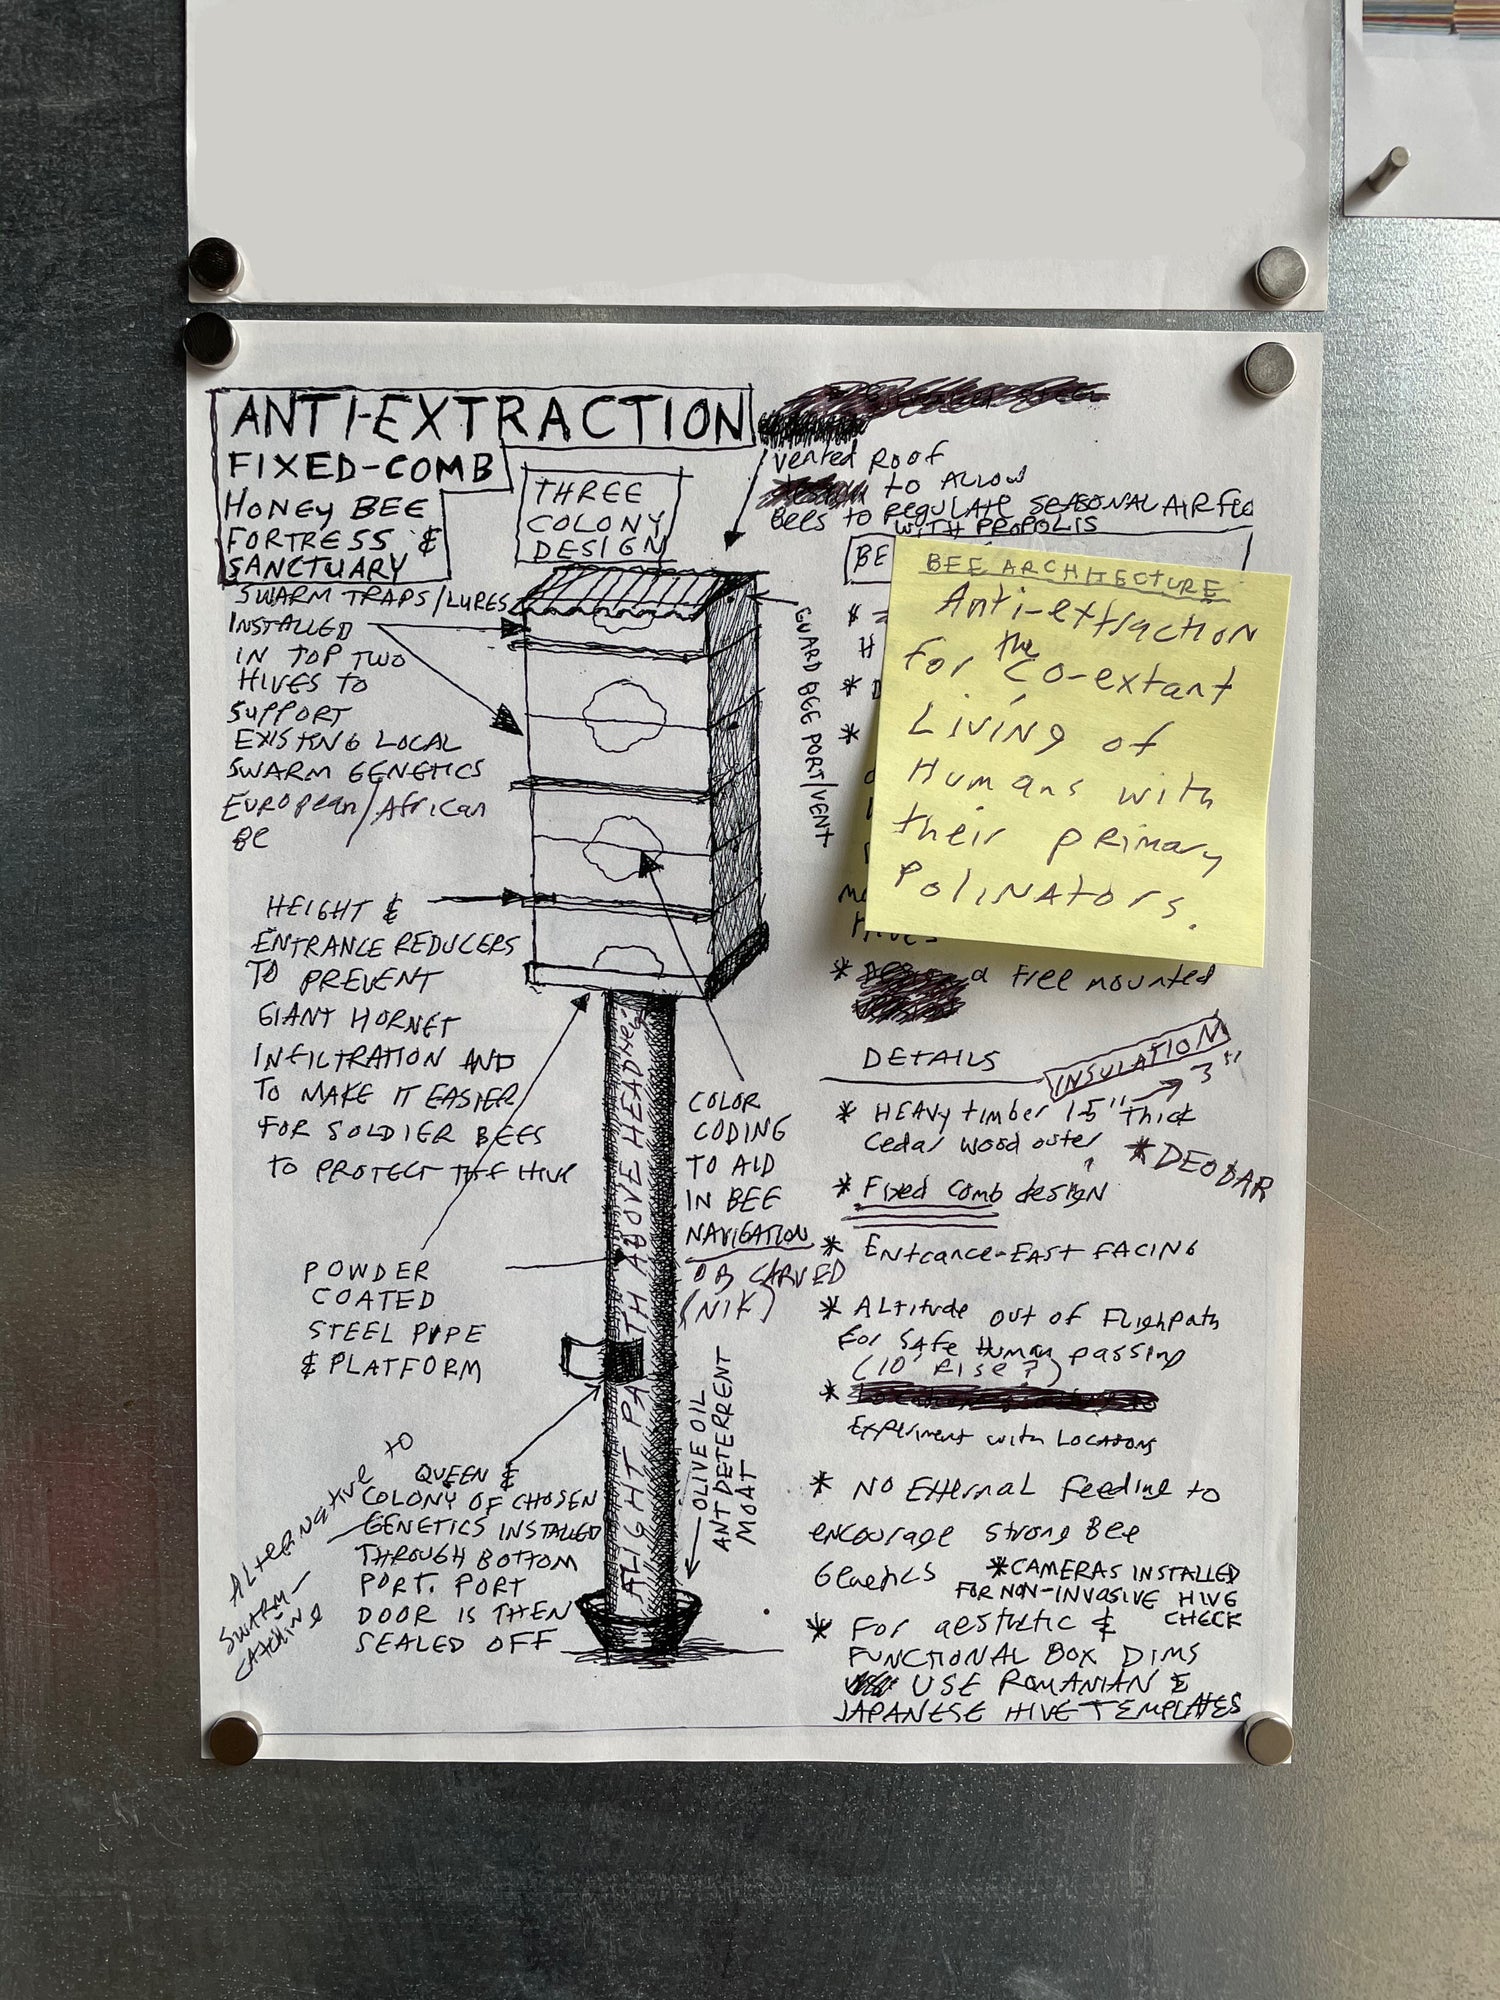 ANTI-EXTRACTION
FIXED-COMB
HONEY BEE
FORTRESS &
SANCTUARY
THREE
COLONY
DESIGN
Vented Roof
to ALLOW
Bees to REGULATE SEASONAL AIR
WITH PROPOLIS
SWARM TRAPS/LURES
INSTALLED
IN TOP TWO
HIVES TO
SUPPORT
EXISTING LOCAL
SWARM GENETICS
European/African
GUARD BEE PORT/VENT
BEE ARCHITECTURE
Anti-extraction
for the Co-extant
Living of
Humans with
their primary
Polinators.
* a Free mounted
HEIGHT &
ENTRANCE REDUCERS
TO PREVENT
GIANT HORNET
INFILTRATION AND
TO MAKE IT EASIER
FOR SOLDIER BEES
TO PROTECT THE HIVE
COLOR
CODING
TO AID
IN BEE
NAVIGATION
OR CARVED
(NIK)
POWDER
COATED
STEEL PIPE
& PLATFORM
FLIGHT PATH ABOVE HEAD
OLIVE OIL
ANT DETERRENT
MOAT
Alternative to
SWARM-
CATCHING
QUEEN &
COLONY OF CHOSEN
GENETICS INSTALLED
THROUGH BOTTOM
PORT. PORT
DOOR IS THEN
SEALED OFF
DETAILS
INSULATION
3"
* HEAVY timber 1.5" Thick
Cedar wood outer
* DEODAR
* Fixed Comb design
* Entrance-EAST FACING
* ALtitude out of Flighpath
for safe Human passing
(10' Rise?)
*
Experiment with Locations
* NO External Feeding to
encourage strong Bee
Genetics
* CAMERAS INSTALLED
FOR NON-INVASIVE HIVE
CHECK
* For aesthetic &
FUNCTIONAL BOX DIMS
USE ROMANIAN &
JAPANESE HIVE TEMPLATES